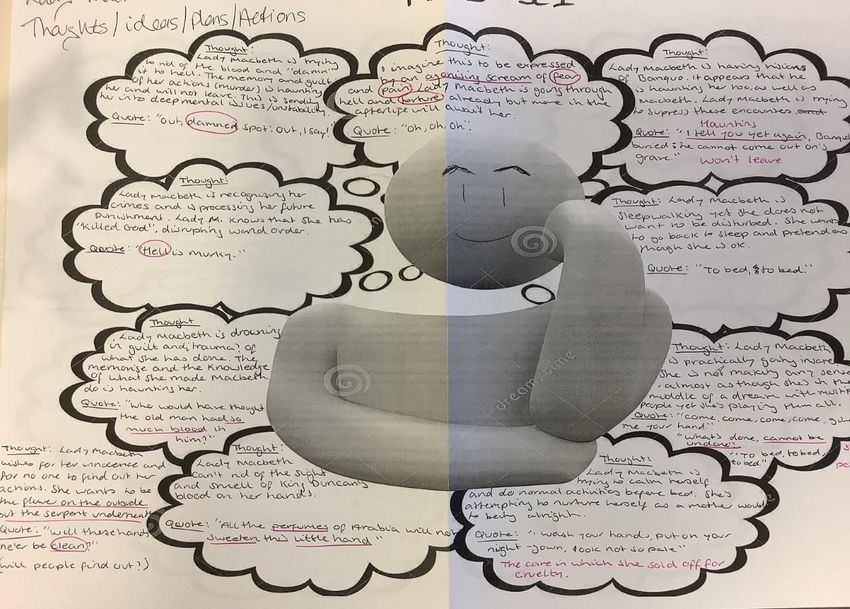 Thoughts/ideas/plans/Actions
Thought:
Lady Macbeth is trying
to rid of the blood and "damn"
it to hell. The memory and guilt
of her actions (murder) is haunting
her and will not leave. This is sending
her into deep mental issues/instability.
Quote: "Out, damned spot: out, I say!
Thought:
I imagine this to be expressed
by an agonising scream of fear
and pain. Lady Macbeth is going through
hell and torture already but more in the
afterlife will await her.
Quote: "oh, oh, oh".
Thought:
Lady Macbeth is having visions
of Banquo. It appears that he
is haunting her too, as well as
Macbeth. Lady Macbeth is trying
to supress these encounters.
Haunting
Quote: "I tell you yet again, Banquo
buried; he cannot come out on's
grave."
won't leave
Thought:
Lady Macbeth is recognising her
crimes and is processing her future
punishment. Lady M. knows that she has
"killed God", disrupting world order.
Quote: "Hell is murky."
Thought: Lady Macbeth is
sleepwalking yet she does not
want to be disturbed. She
to go back to sleep and pretend as
though she is ok.
Quote: "To bed, to bed."
Thought
Lady Macbeth is drowning
in guilt and trauma, of
what she has done. The
memorise and the knowledge
of what she made Macbeth
do is haunting her.
Quote: "who would have thought
the old man had so
much blood in
him?"
Thought: Lady Macbeth
is practically going insane
She is not making any sense
, almost as though she's in the
middle of a dream with
people yet she's playing them all.
Quote: "come, come, come, come,
me your hand"
"What's done, cannot be
undone".
"To bed, to bed
to bed."
Thought: Lady Macbeth
wishes for her innocence and
for no one to find out her
actions. She wants to be
the flower on the outside
but the serpent underneath
Quote: "will these hands
ne'er be clean?"
(will people find out?)
Thought:
Lady Macbeth
can't rid of the sight
and smell of King Duncan's
blood on her hands.
Quote: "All the perfumes of Arabia will not
sweeten this little hand"
Thought:
Lady Macbeth is
trying to calm herself
and do normal activities before bed. She's
attempting to nurture herself as a mother would
to being alright.
Quote: "wash your hands, put on your
night-gown, look not so pale"
The care in which she sold off for
cruelty.
dreamstime